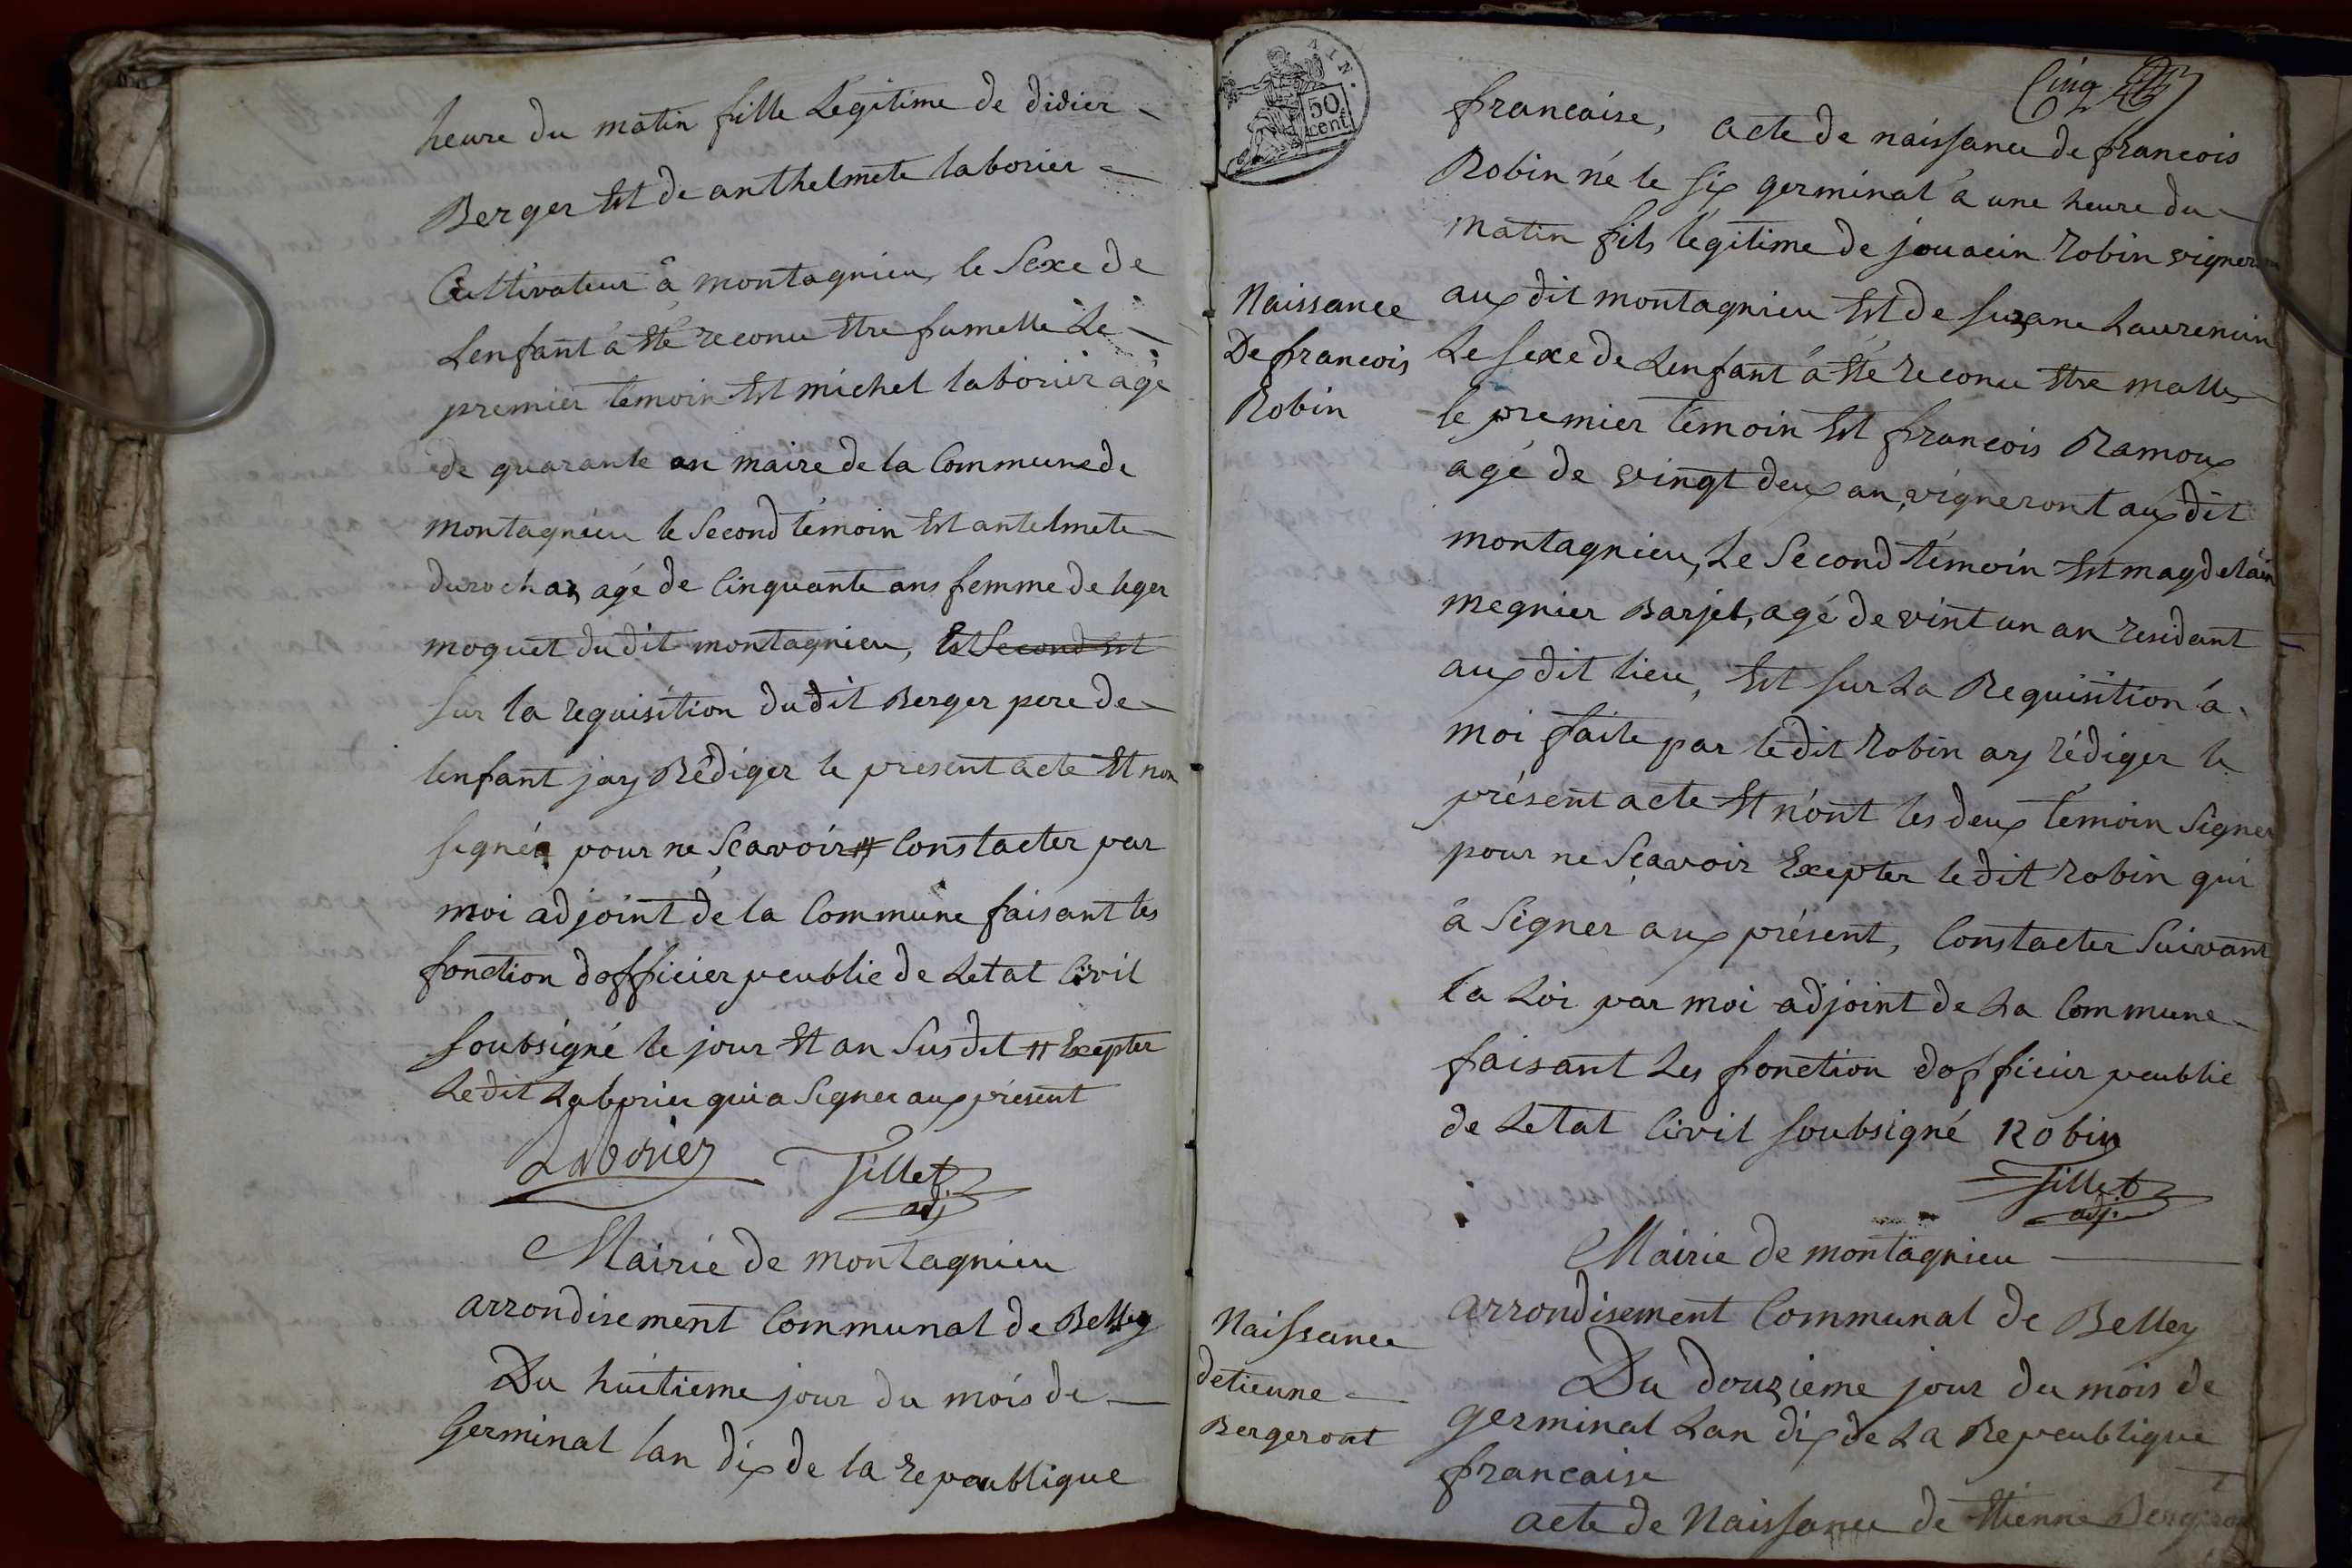 heure du matin fille Legitime de didier -
Berger Et de anthelmete laborier -
Cultivateur à montagnieu, le Sexe de
Lenfant à Eté reconu Etre fumelle Le -
premier témoin Est michel laborier agé
de quarante an maire de la Commune de
montagnieu le Second témoin Est antelmete -
durochas agé de Cinquante ans femme de leger
moquet dudit montagnieu, Et Second Est
sur la requisition dudit Berger pere de -
lenfant jay Rédiger le present acte Et non
signée pour ne Scavoir # Constacter par
moi adjoint de la Commune faisant les
fonction dofficier peublic de Letat Civil
soubsigné le jour Et an Susdit # Exepter
Ledit Laborier qui a Signer aux présent
Laborier Tillet
adj.
Mairie de montagnieu
arrondisement Communal de Belley
Du huitieme jour du mois de -
Germinal lan dix de la repeublique
AIN.
50
cent.
Cinq
francaise, acte de naissance de francois
Robin né le six germinal à une heure du -
matin fils légitime de jouacin Robin vigneron
aux dit montagnieu Est de suzane Laurencin
Naissance
De francois
Robin
Le sexe de Lenfant à Eté reconu Etre malle,
le premier témoin Est francois Ramoux
agé de vingt deux an, vigneront aux dit
montagnieu, Le Second témoin Est magdelain
megnier Barjet, agé de vint un an residant
aux dit lieu, Est sur La Requisition à
moi faite par ledit Robin ay rédiger le
présent acte Et n'ont les deux témoin Signer
pour ne Scavoir Exepter ledit Robin qui
à Signer aux présent, Constacter Suivant
la Loi par moi adjoint de La Commune -
faisant Les fonction dofficier peublic
de Letat Civil soubsigné Robin
Tillet
adj.
Mairie de montagnieu
arrondisement Communal de Belley
Naissance
detienne -
Bergeront
Du douzieme jour du mois de
germinal Lan dix de La Repeublique
francaise
acte de Naissance de Etienne Bergeron